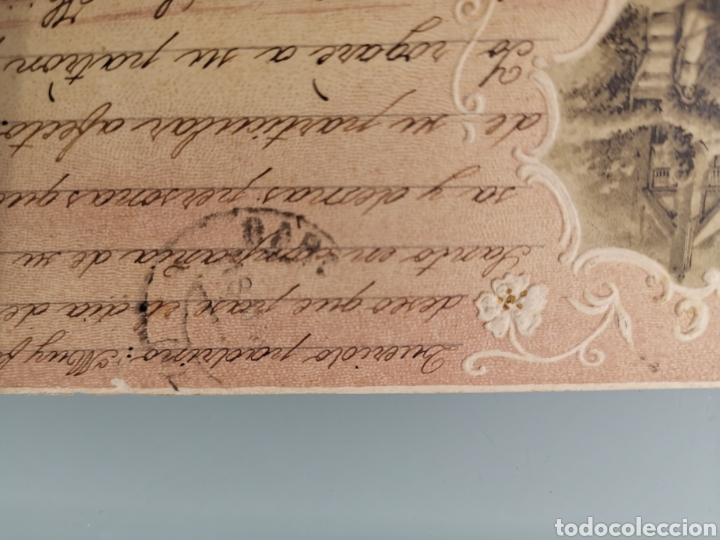 Querido padrino: Muy
deseo que pase el dia de
Santo en compañia de su
sa y demas personas que
de su particular afecto.
Yo rogaré a su patron
BAR
todocoleccion
todocoleccion.net